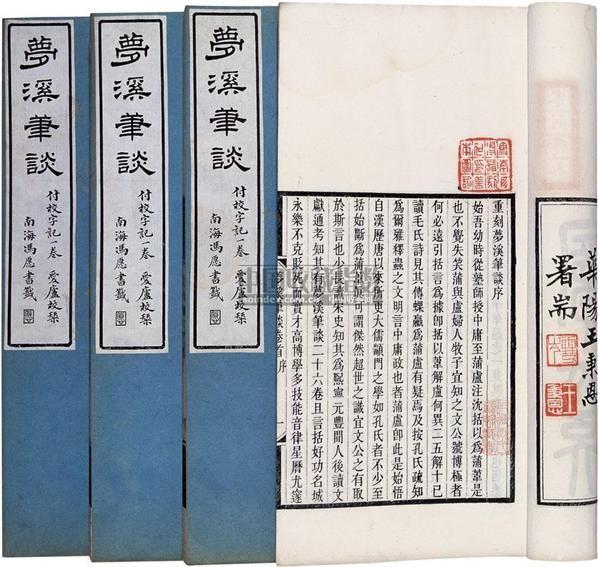 夢溪筆談
付校字記一卷 愛廬校栞
南海馮愿書籤
夢溪筆談
付校字記一卷 愛廬校栞
南海馮愿書籤
夢溪筆談
付校字記一卷 愛廬校栞
南海馮愿書籤
華陽王秉恩
署耑
重刻夢溪筆談序
始吾幼時從塾師授中庸至蒲盧注沈括以爲蒲葦是
也不覺失笑蒲與盧婦人牧子宜知之文公號博極者
何必遠引括言爲據卽括以葦解盧何異二五解十已
讀毛氏詩見其傳蜾蠃爲蒲盧有疑焉及按孔氏疏知
爲爾雅釋蟲之文明言中庸政也者蒲盧卽此是始悟
自漢歷唐以來所更大儒顓門之學如孔氏者不少至
括始斷爲蒲葦可謂傑然超世之識宜文公之有取
於斯言也宋史知其爲熙寧元豐間人後讀文
獻通考知其有夢溪筆談二十六卷且言括好功名城
永樂不克貶死而實才高博學多技能音律星曆尤邃
筆談卷首 序 一